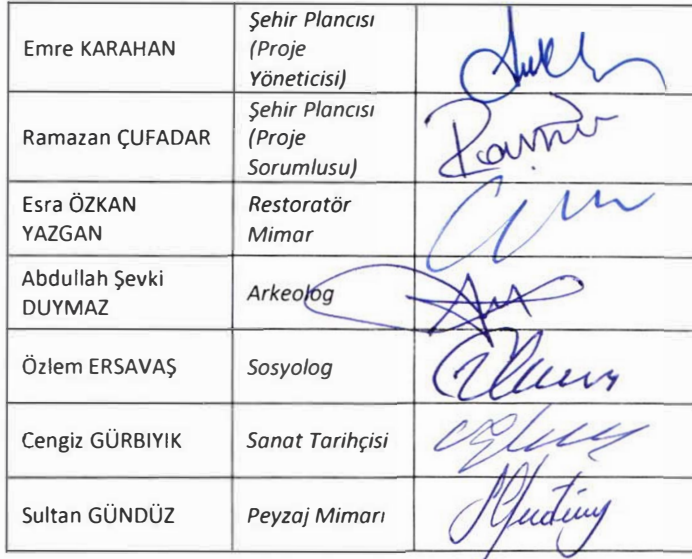 Emre KARAHAN
Şehir Plancısı
(Proje
Yöneticisi)
Ramazan ÇUFADAR
Şehir Plancısı
(Proje
Sorumlusu)
Esra ÖZKAN
YAZGAN
Restoratör
Mimar
Abdullah Şevki
DUYMAZ
Arkeolog
Özlem ERSAVAŞ
Sosyolog
Cengiz GÜRBIYIK
Sanat Tarihçisi
Sultan GÜNDÜZ
Peyzaj Mimarı